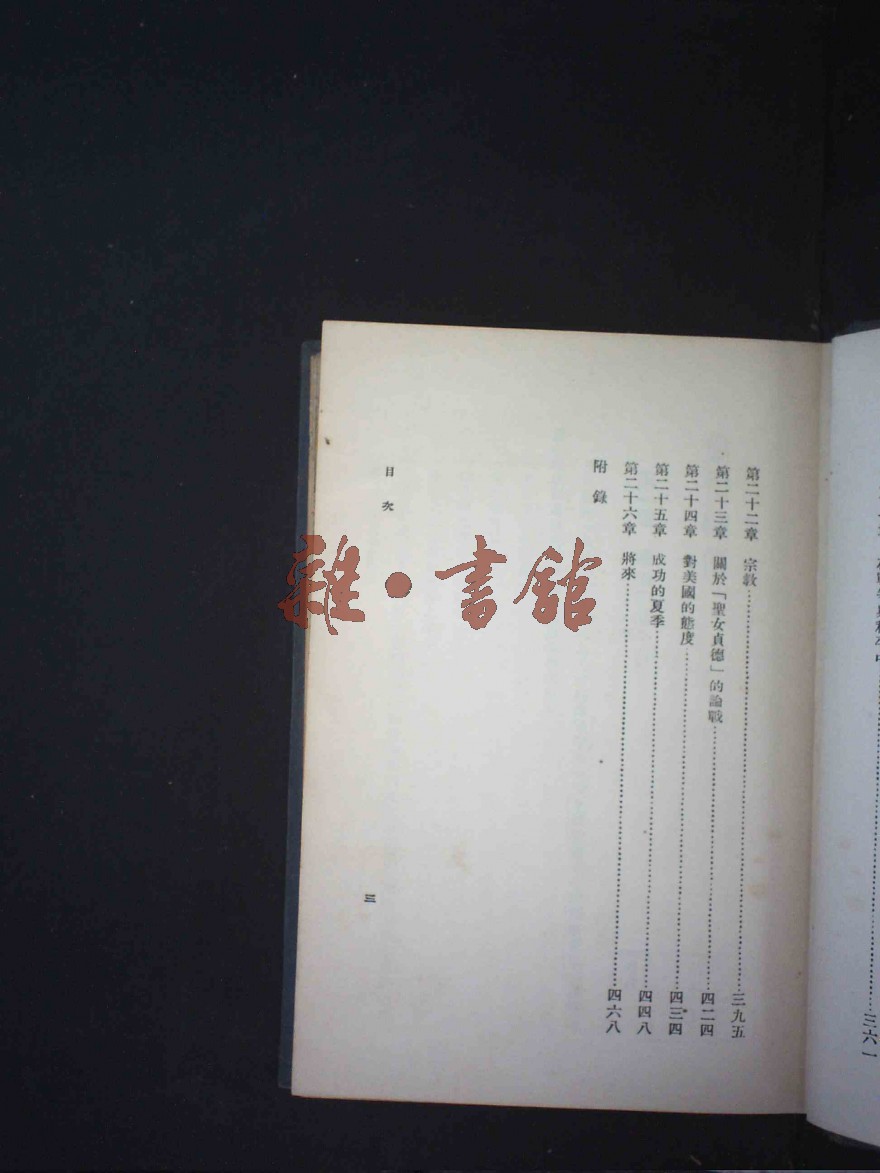 第二十二章　宗教……三九五
第二十三章　關於「聖女貞德」的論戰……四二四
第二十四章　對美國的態度……四三四
第二十五章　成功的夏季……四四八
第二十六章　將來……四六八
附錄
目次
三
三六一
雜·書館